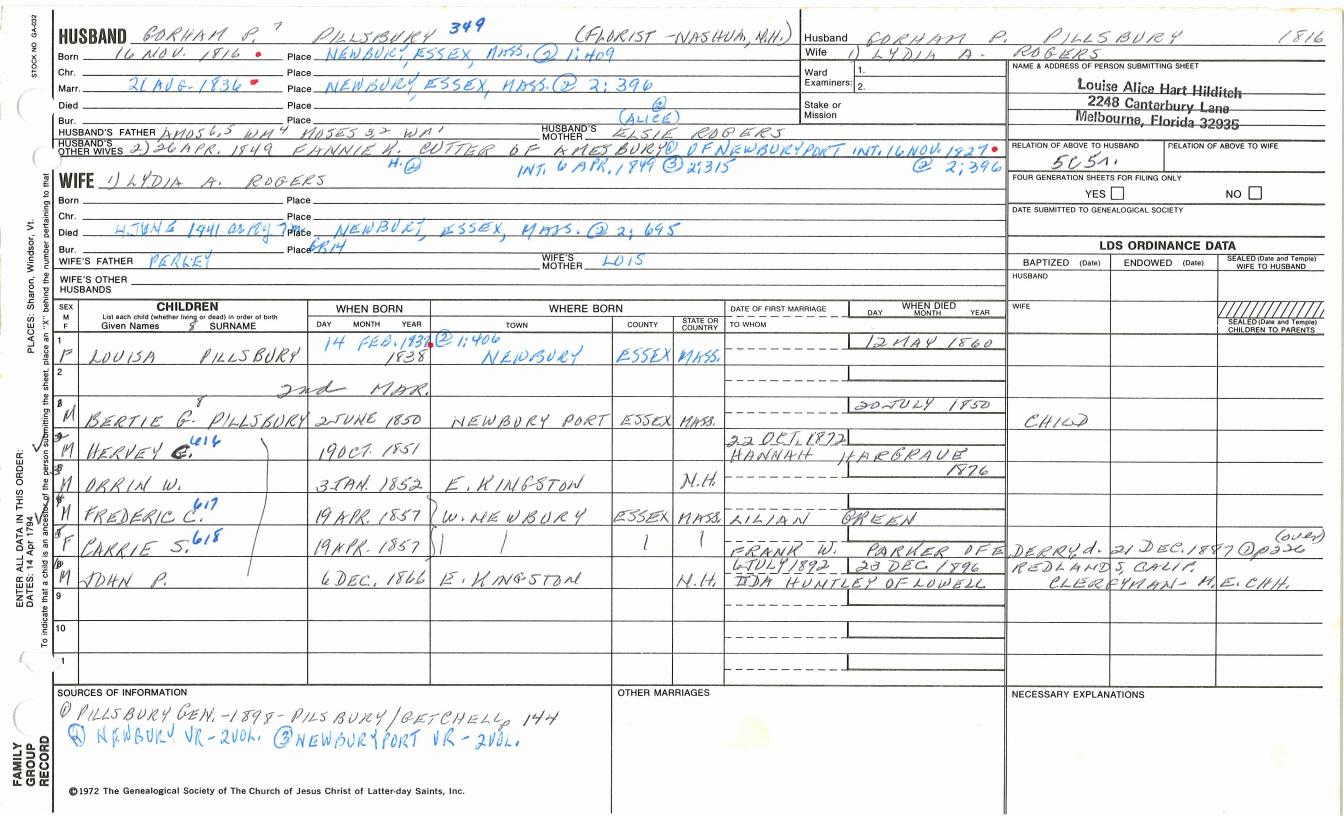 STOCK NO. GA-032
HUSBAND GORHAM P. 7 PILLSBURY 349 (FLORIST -NASHUA, N.H.)
Born 16 NOV. 1816 Place NEWBURY, ESSEX, MASS. ② 1:409
Chr. Place
Marr. 21 AUG. 1836 Place NEWBURY, ESSEX, MASS. ② 2; 396
Died Place
Bur. Place (ALICE) ②
HUSBAND'S FATHER AMOS 6,5 WM 4 MOSES 3 2 WM 1 HUSBAND'S MOTHER ELSIE ROGERS
HUSBAND'S OTHER WIVES 2) 26 APR. 1849 FANNIE H. CUTTER OF AMESBURY ① OF NEWBURYPORT INT. 16 NOV. 1827
H. ② INT. 6 APR. 1849 ③ 2;315 ② 2; 396
Husband GORHAM P. PILLSBURY 1816
Wife 1) LYDIA A. ROGERS
Ward Examiners: 1.
2.
Stake or Mission
NAME & ADDRESS OF PERSON SUBMITTING SHEET
Louise Alice Hart Hilditch
2248 Canterbury Lane
Melbourne, Florida 32935
RELATION OF ABOVE TO HUSBAND 5C5r. RELATION OF ABOVE TO WIFE
FOUR GENERATION SHEETS FOR FILING ONLY
YES NO
DATE SUBMITTED TO GENEALOGICAL SOCIETY
WIFE 1) LYDIA A. ROGERS
Born Place
Chr. Place
Died 4 JUNE 1841 Place NEWBURY, ESSEX, MASS. ② 2; 695
Bur. Place GR14
WIFE'S FATHER PERLEY WIFE'S MOTHER LOIS
WIFE'S OTHER HUSBANDS
LDS ORDINANCE DATA
BAPTIZED (Date) ENDOWED (Date) SEALED (Date and Temple) WIFE TO HUSBAND
HUSBAND
WIFE
SEALED (Date and Temple) CHILDREN TO PARENTS
SEX M F CHILDREN List each child (whether living or dead) in order of birth Given Names 8 SURNAME WHEN BORN DAY MONTH YEAR WHERE BORN TOWN COUNTY STATE OR COUNTRY DATE OF FIRST MARRIAGE TO WHOM WHEN DIED DAY MONTH YEAR
1 14 FEB. 1837 ② 1; 406 12 MAY 1860
F LOUISA PILLSBURY 1838 NEWBURY ESSEX MASS.
2 2nd MAR.
8 20 JULY 1850
M BERTIE G. PILLSBURY 2 JUNE 1850 NEWBURY PORT ESSEX MASS. CHILD
616 22 OCT. 1872
M HERVEY E. 19 OCT. 1851 HANNAH HARGRAVE
1876
M ORRIN W. 3 JAN. 1852 E. KINGSTON N.H.
617
M FREDERIC C. 19 APR. 1857 W. NEWBURY ESSEX MASS. LILIAN GREEN
618 (over)
F CARRIE S. 19 APR. 1857 FRANK W. PARKER OF E DERRY d. 21 DEC. 1897 ① p226
6 JULY 1892 23 DEC 1896 REDLANDS, CALIF.
M JOHN P. 6 DEC. 1866 E. KINGSTON N.H. IDA HUNTLEY OF LOWELL CLERGYMAN - M.E. CHH.
9
10
1
SOURCES OF INFORMATION
① PILLSBURY GEN. -1898- PILSBURY/GETCHELL p 144
② NEWBURY VR - 2 VOL. ③ NEWBURYPORT VR - 2 VOL.
OTHER MARRIAGES
NECESSARY EXPLANATIONS
©1972 The Genealogical Society of The Church of Jesus Christ of Latter-day Saints, Inc.
PLACES: Sharon, Windsor, Vt.
ENTER ALL DATA IN THIS ORDER:
DATES: 14 Apr 1794
To indicate that a child is an ancestor of the person submitting the sheet, place an "X" behind the number pertaining to that
FAMILY GROUP RECORD